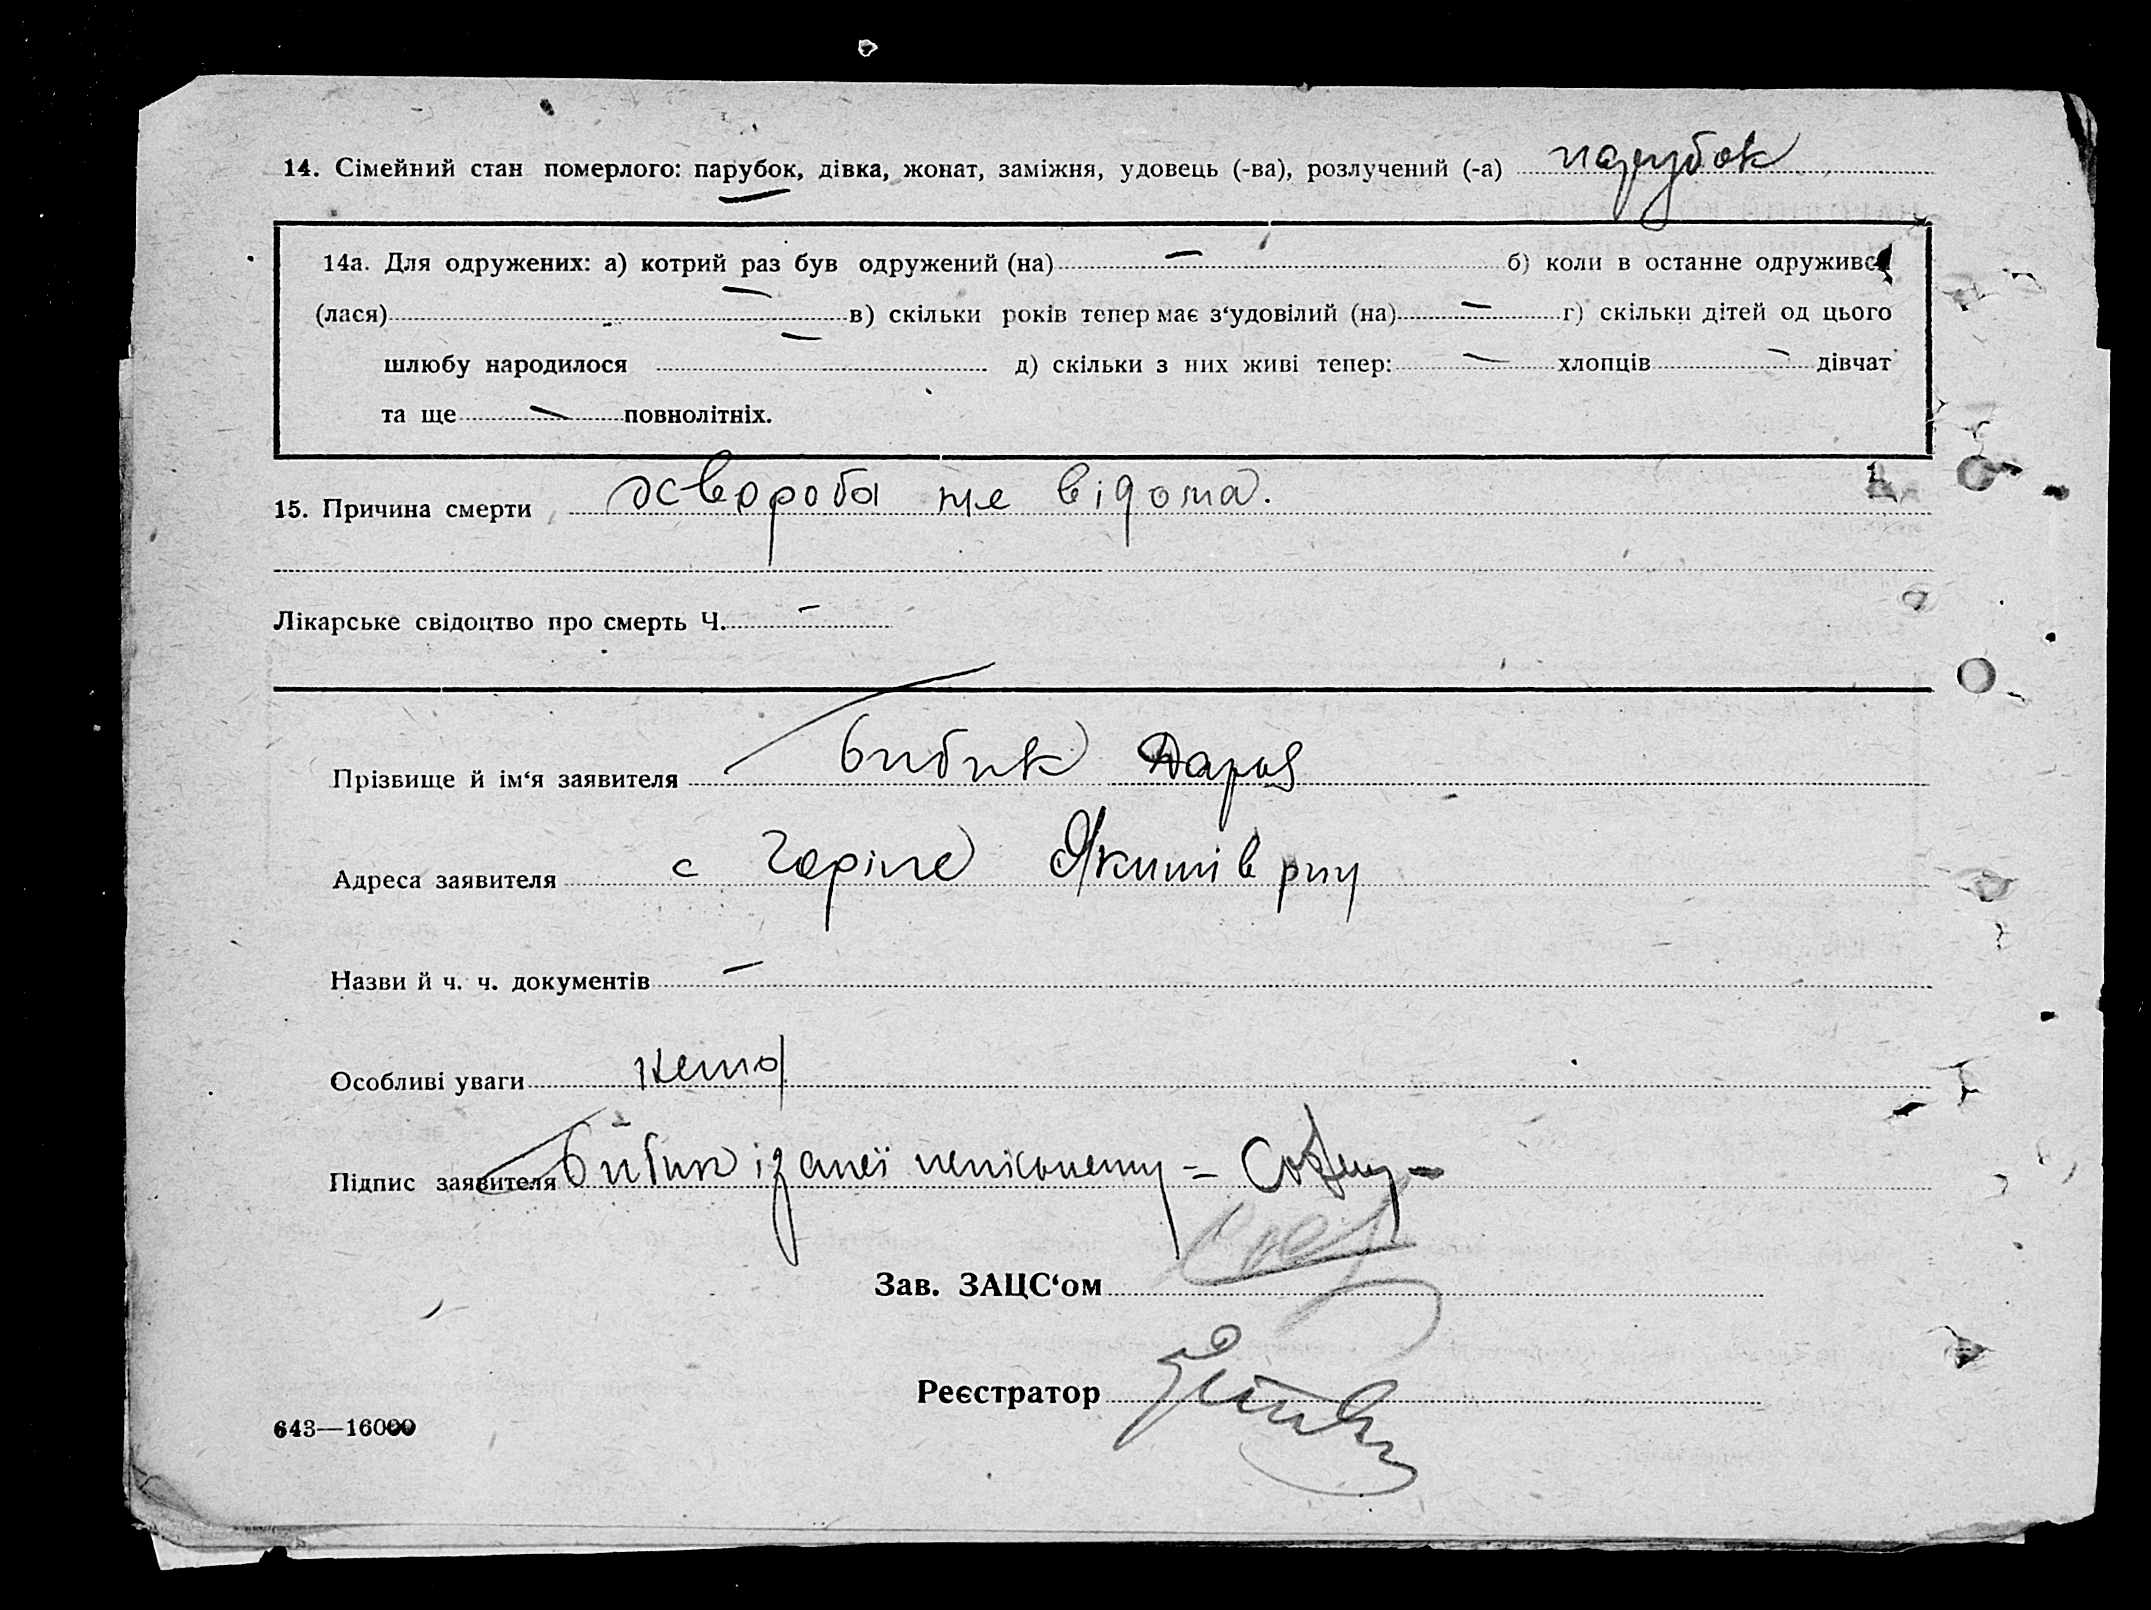 14. Сімейний стан померлого: парубок, дівка, жонат, заміжня, удовець (-ва), розлучений (-а) парубок
14а. Для одружених: а) котрий раз був одружений (на) — б) коли в останне одружився
(лася) — в) скільки років тепер має з‘удовілий (на) — г) скільки дітей од цього
шлюбу народилося — д) скільки з них живі тепер: — хлопців — дівчат
та ще — повнолітніх.
15. Причина смерти хвороба не відома.
Лікарське свідоцтво про смерть Ч. —
Прізвище й ім‘я заявителя Бибик Дария
Адреса заявителя с Горіле Якимів рну
Назви й ч. ч. документів —
Особливі уваги нема
Підпис заявителя Бибик
Зав. ЗАЦС‘ом
Реєстратор
643—16000